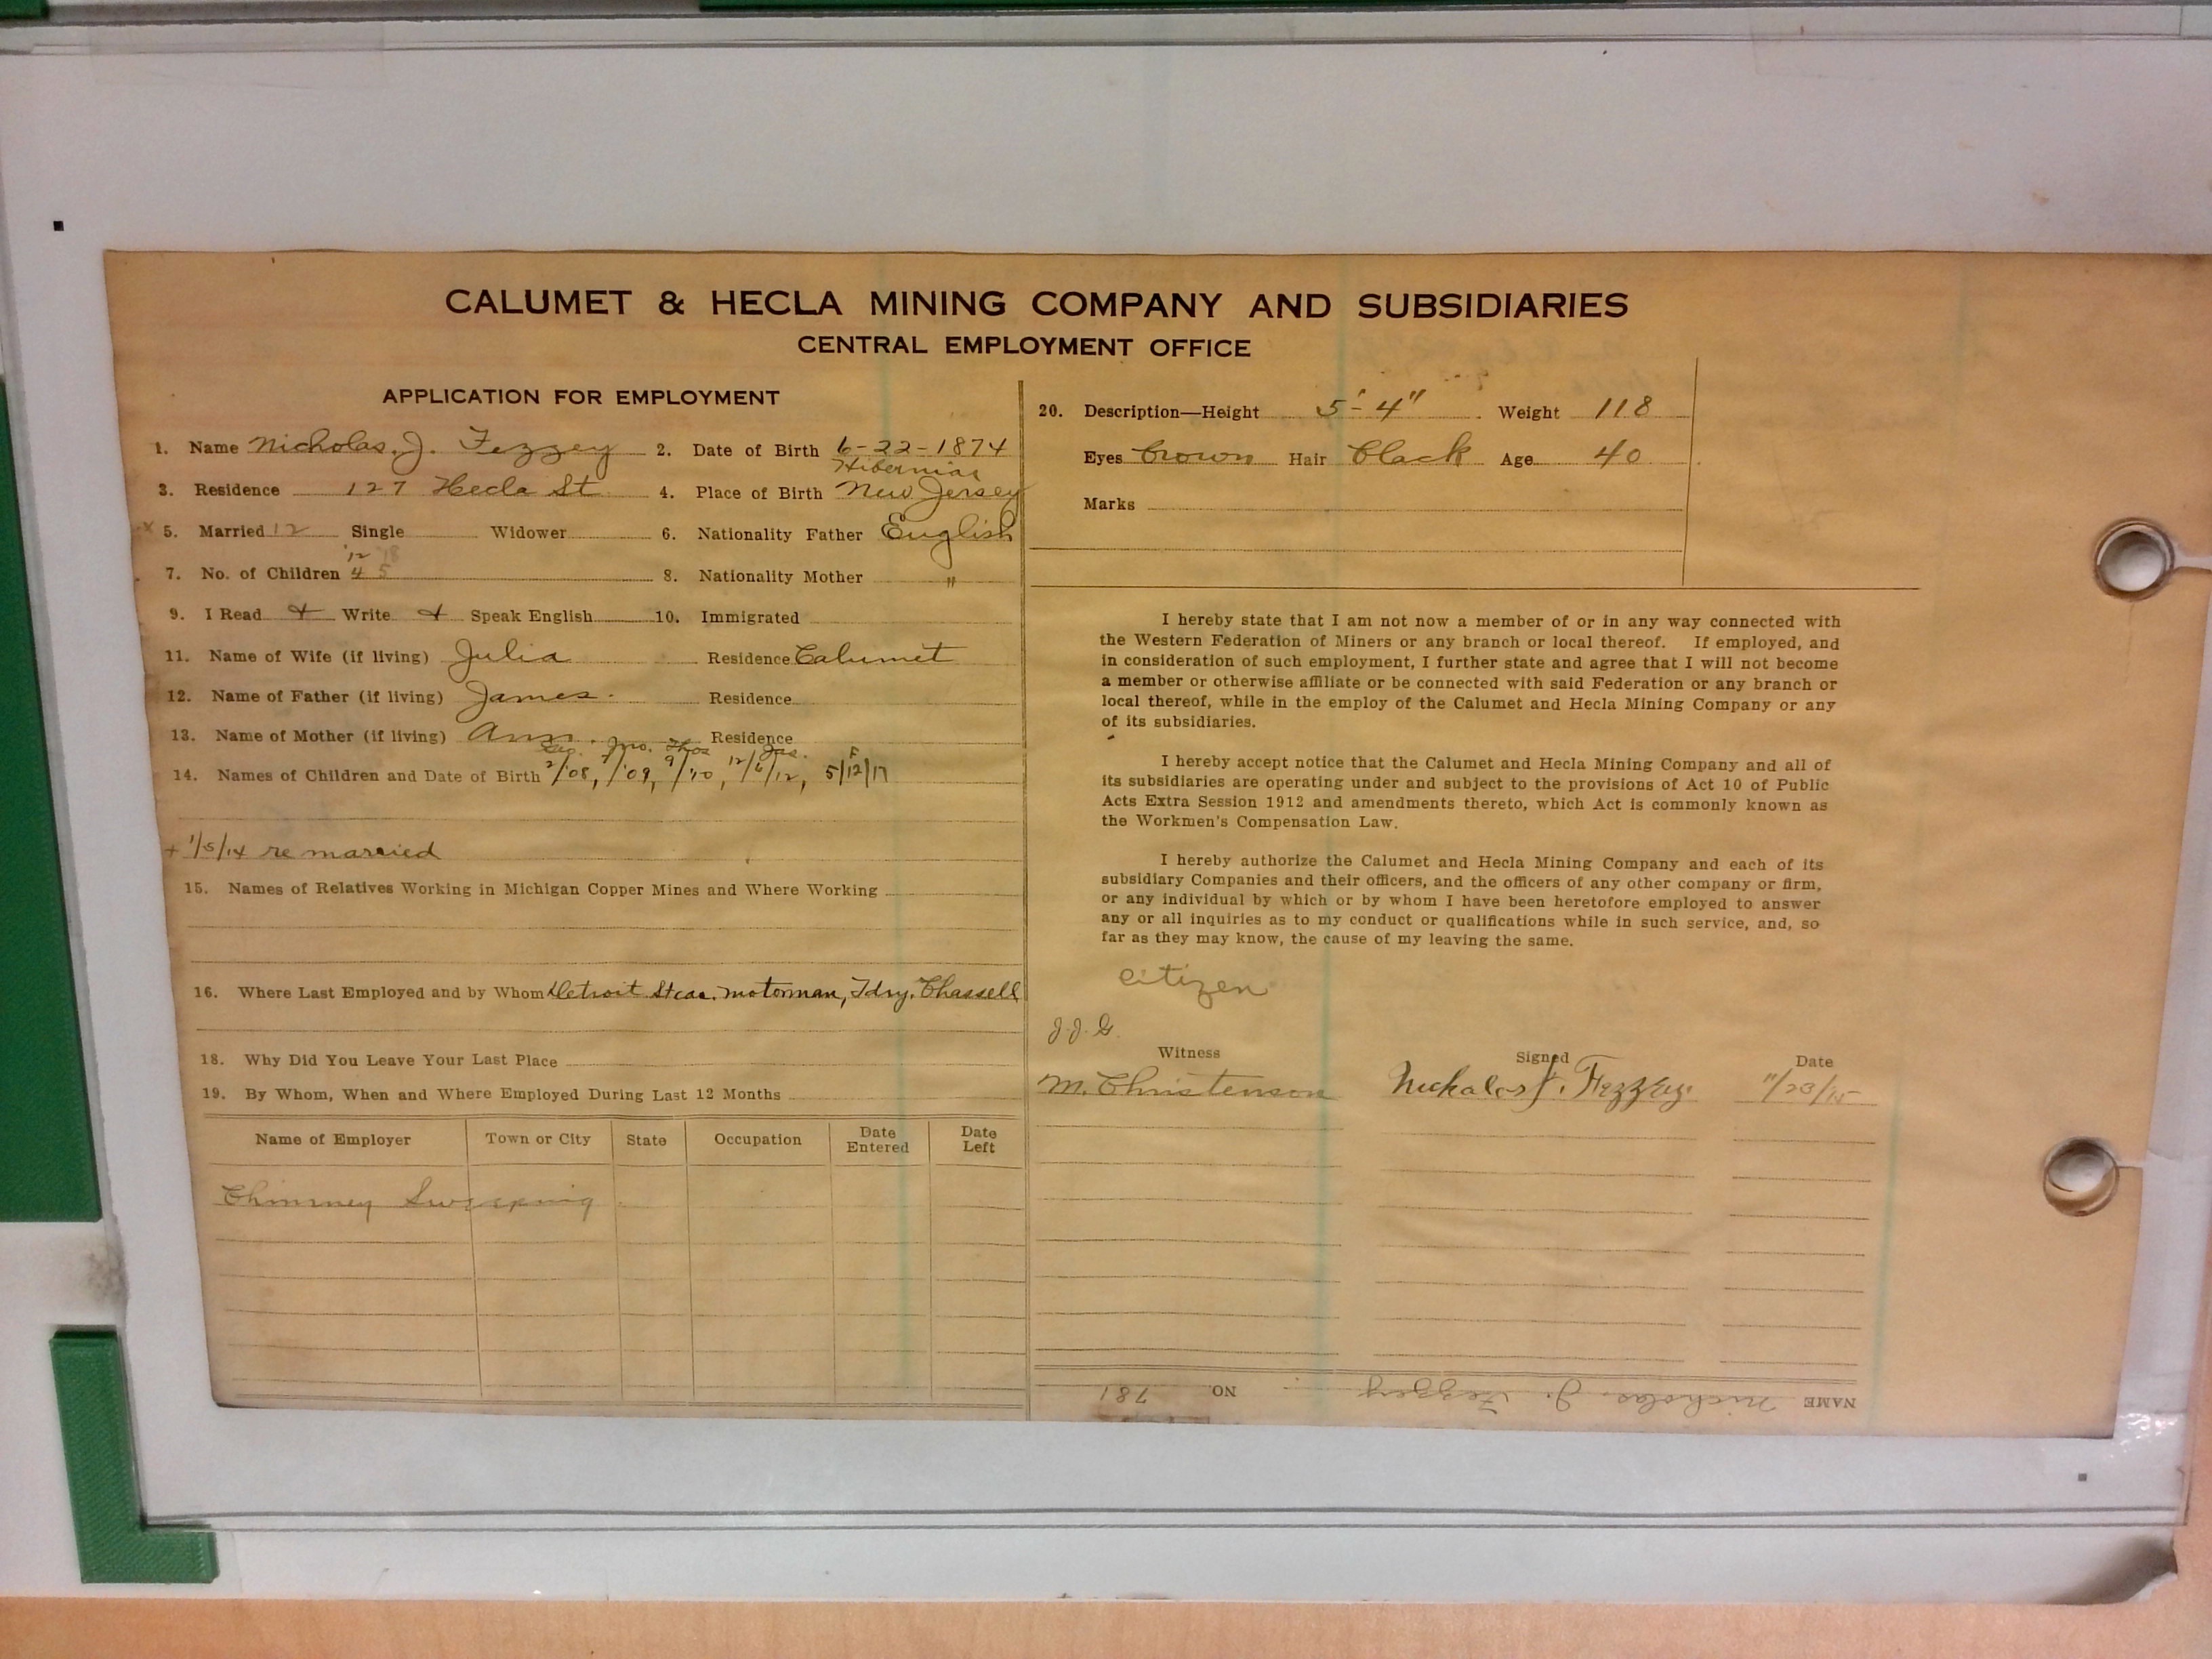 CALUMET & HECLA MINING COMPANY AND SUBSIDIARIES
CENTRAL EMPLOYMENT OFFICE
APPLICATION FOR EMPLOYMENT
1. Name Nicholas. J. Fezzey 2. Date of Birth 6-22-1874
Hibernia
3. Residence 127 Hecla St 4. Place of Birth New Jersey
x 5. Married 12 Single Widower 6. Nationality Father English
'12 '18
7. No. of Children 4 5 8. Nationality Mother "
9. I Read + Write + Speak English 10. Immigrated
11. Name of Wife (if living) Julia Residence Calumet
12. Name of Father (if living) James. Residence
13. Name of Mother (if living) Ann. Residence
Jno. Thos Jas. F
14. Names of Children and Date of Birth 2/'08, 7/'09, 9/'10, 12/6/12, 5/12/17
+ 1/5/14 re married
15. Names of Relatives Working in Michigan Copper Mines and Where Working
16. Where Last Employed and by Whom Detroit St car. motorman, Fdry. Chassell
18. Why Did You Leave Your Last Place
19. By Whom, When and Where Employed During Last 12 Months
Name of Employer Town or City State Occupation Date Entered Date Left
Chimney Sweeping
20. Description—Height 5'-4" Weight 118
Eyes Brown Hair Black Age 40
Marks
I hereby state that I am not now a member of or in any way connected with
the Western Federation of Miners or any branch or local thereof. If employed, and
in consideration of such employment, I further state and agree that I will not become
a member or otherwise affiliate or be connected with said Federation or any branch or
local thereof, while in the employ of the Calumet and Hecla Mining Company or any
of its subsidiaries.
I hereby accept notice that the Calumet and Hecla Mining Company and all of
its subsidiaries are operating under and subject to the provisions of Act 10 of Public
Acts Extra Session 1912 and amendments thereto, which Act is commonly known as
the Workmen's Compensation Law.
I hereby authorize the Calumet and Hecla Mining Company and each of its
subsidiary Companies and their officers, and the officers of any other company or firm,
or any individual by which or by whom I have been heretofore employed to answer
any or all inquiries as to my conduct or qualifications while in such service, and, so
far as they may know, the cause of my leaving the same.
Citizen
J.J.G.
Witness Signed Date
M. Christenson Nickalos J. Fezzey. 11/23/15
NAME Nicholas. J. Fezzey NO 781